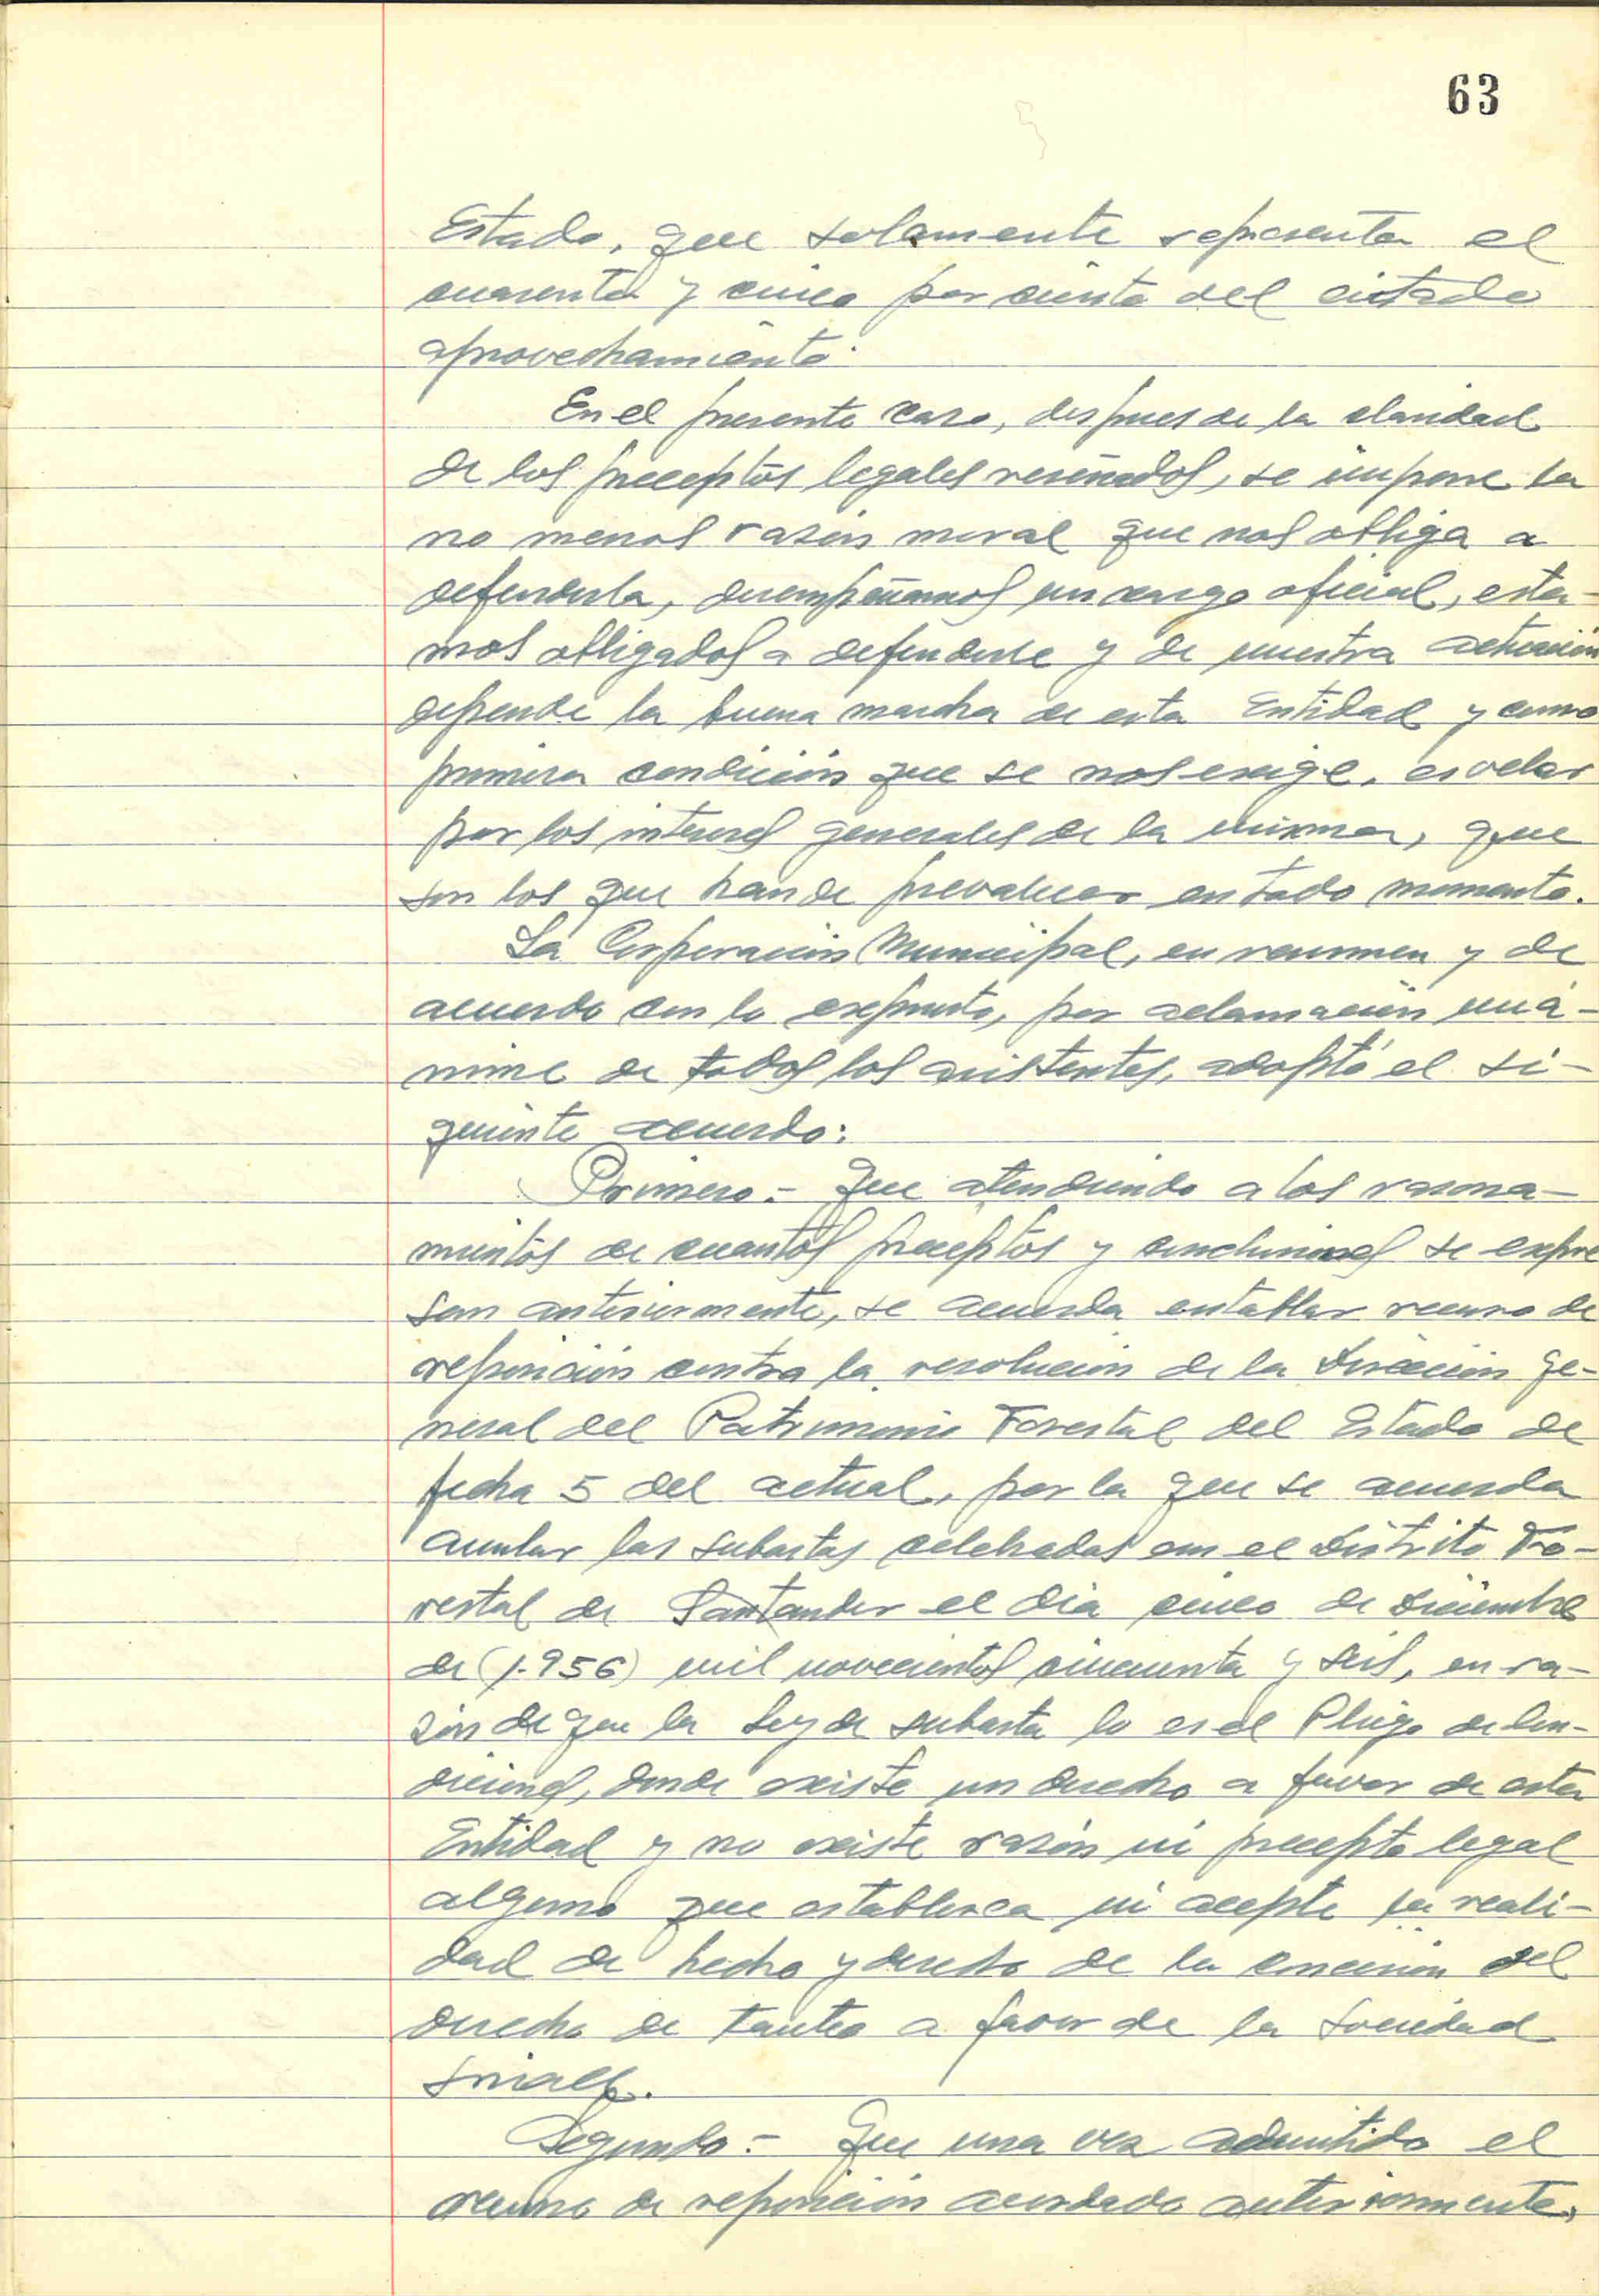 63
Estado, que solamente representa el
cuarenta y cinco por ciento del citado
aprovechamiento.
En el presente caso, despues de la claridad
de los preceptos legales reseñados, se impone la
no menos razón moral que nos obliga a
defenderla, desempeñamos un cargo oficial, esta-
mos obligados a defenderle y de nuestra actuación
depende la buena marcha de esta Entidad y como
primera condición que se nos exige, es velar
por los intereses generales de la misma, que
son los que han de prevalecer en todo momento.
La Corporación Municipal, en resumen y de
acuerdo con lo expuesto, por aclamación uná-
nime de todos los asistentes, adoptó el si-
guiente acuerdo:
Primero.- Que atendiendo a los razona-
mientos de cuantos preceptos y conclusiones se expre
san anteriormente, se acuerda entablar recurso de
reposición contra la resolución de la Dirección Ge-
neral del Patrimonio Forestal del Estado de
fecha 5 del actual, por la que se acuerda
anular las subastas celebradas en el Distrito Fo-
restal de Santander el dia cinco de Diciembre
de (1.956) mil novecientos cincuenta y seis, en ra-
zón de que la Ley de subasta lo es el Pliego de Con-
diciones, donde existe un derecho a favor de esta
Entidad y no existe razón ni precepto legal
alguno que establezca ni acepte la reali-
dad de hecho y derecho de la concesión del
derecho de tanteo a favor de la Sociedad
Sniace.
Segundo.- Que una vez admitido el
recurso de reposición acordado anteriormente,